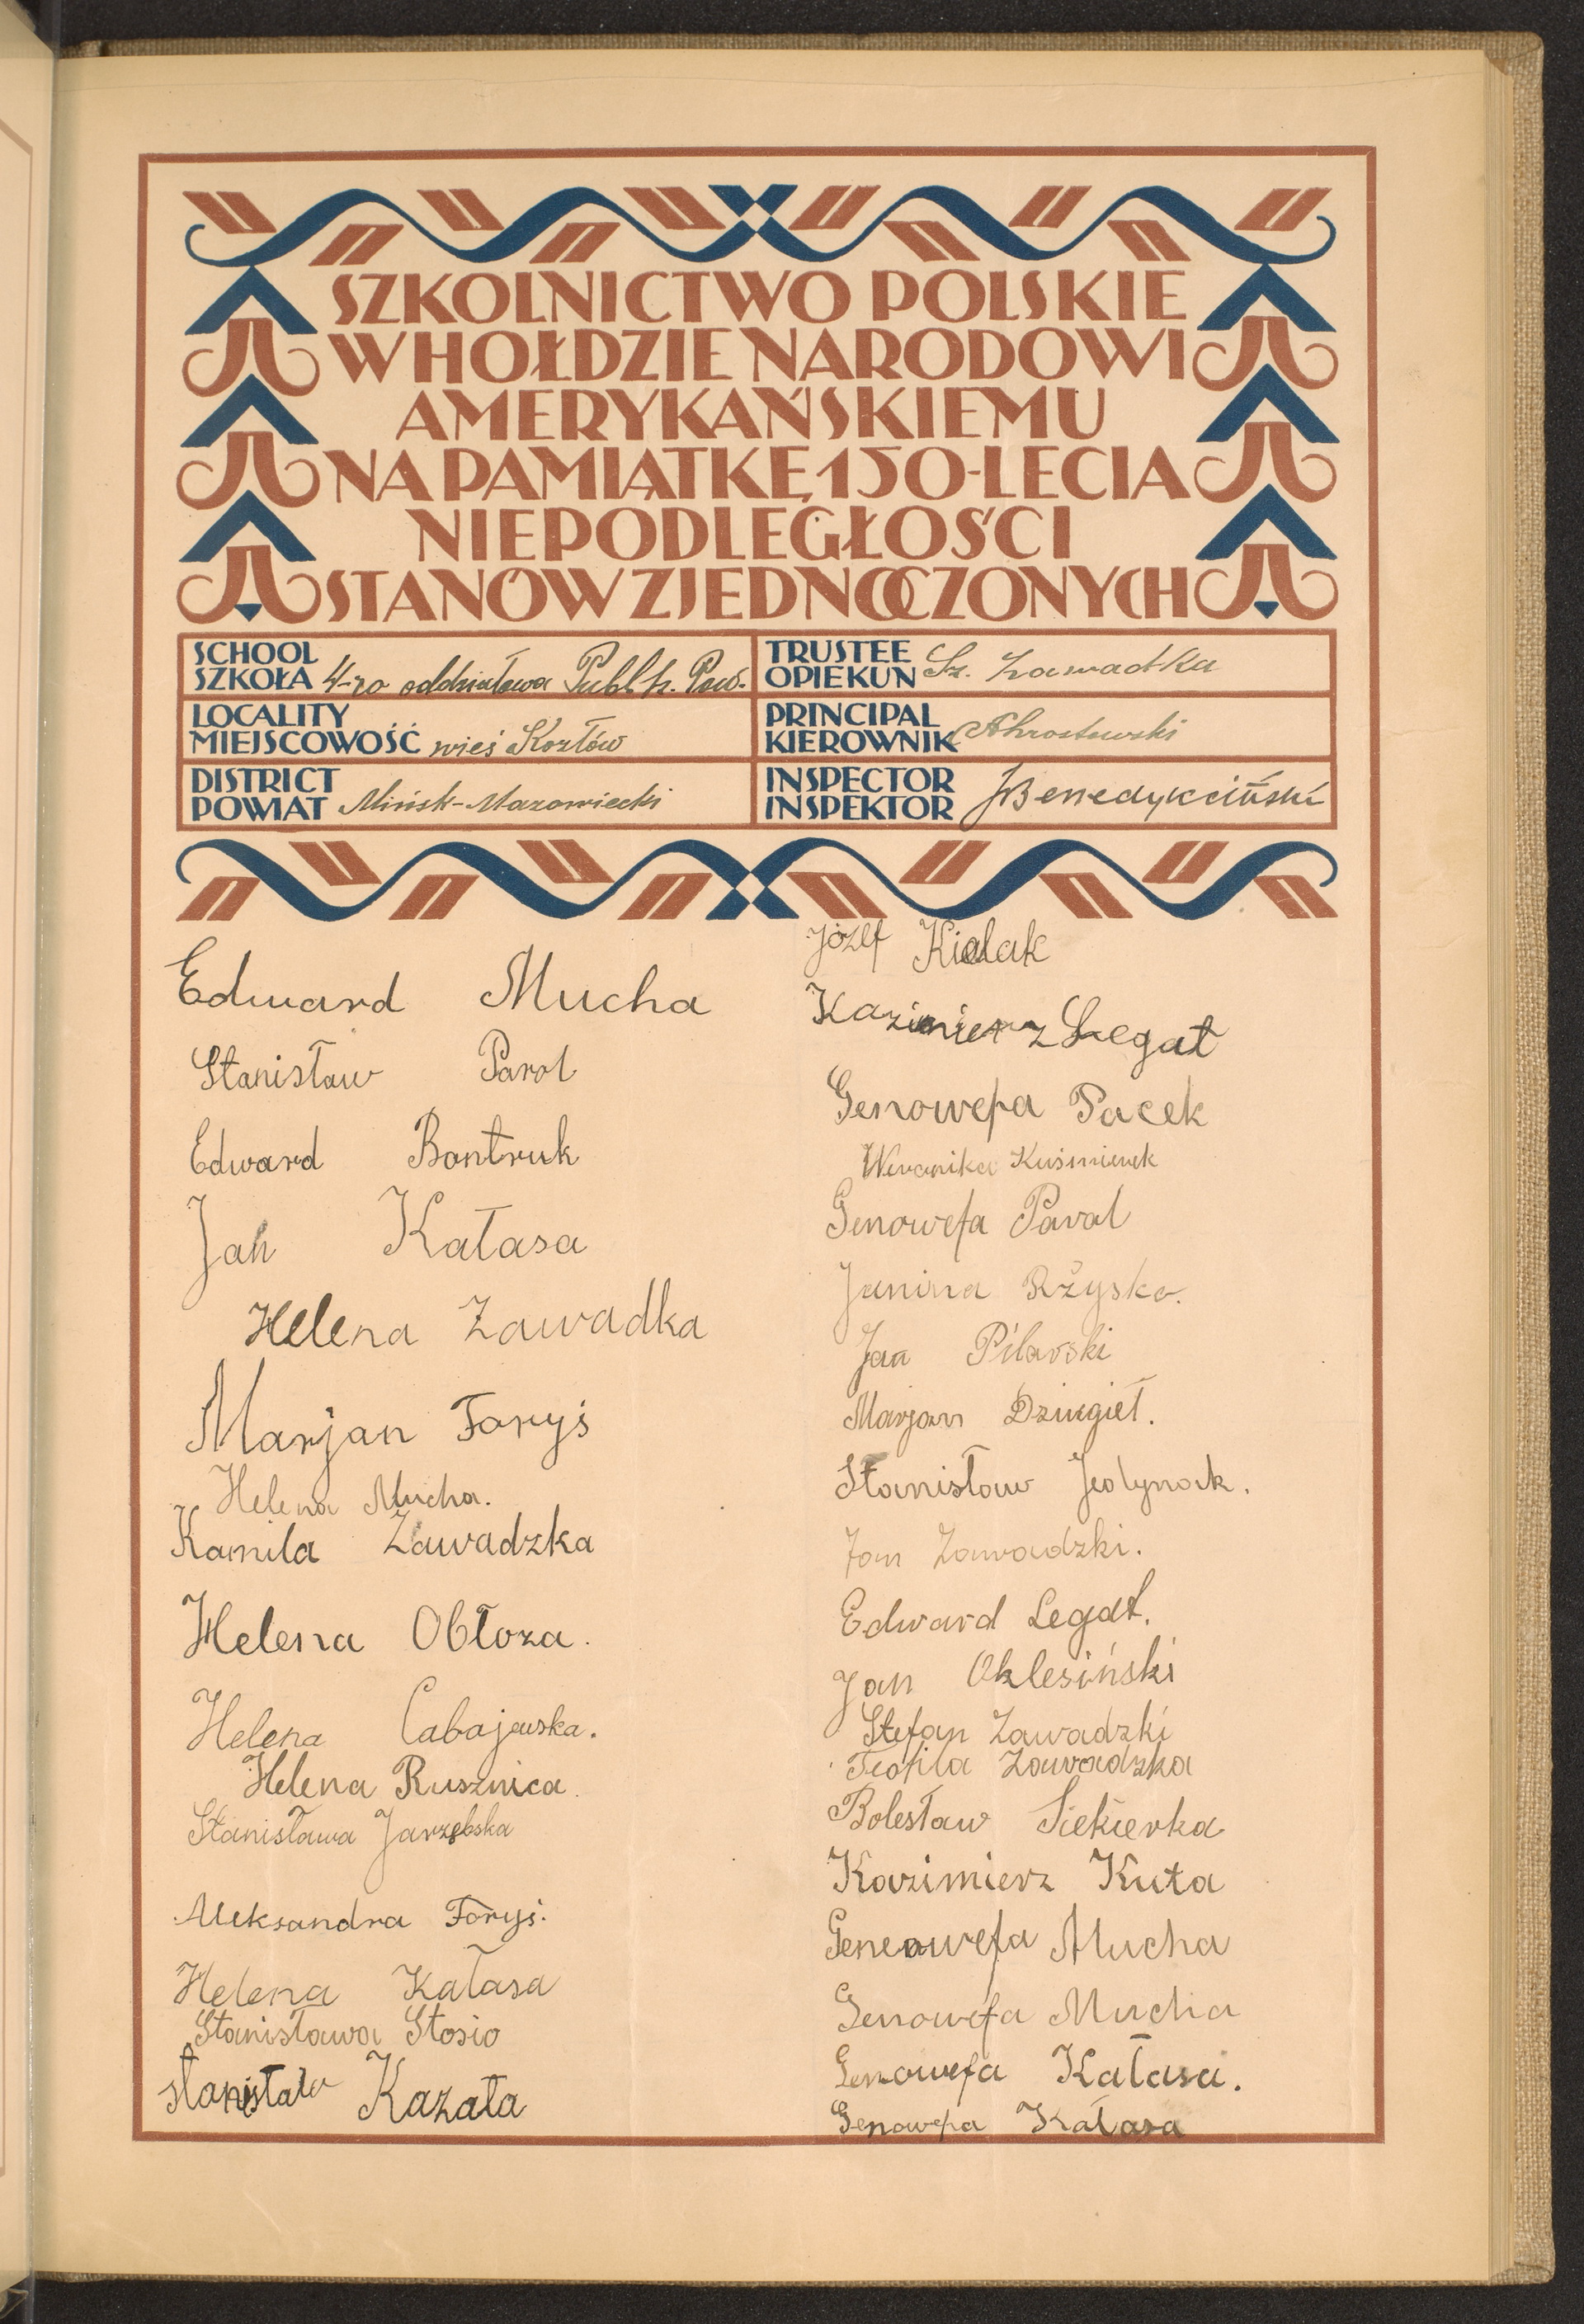 SZKOLNICTWO POLSKIE
W HOŁDZIE NARODOWI
AMERYKAŃSKIEMU
NA PAMIĄTKĘ 150-LECIA
NIEPODLEGŁOŚCI
STANÓW ZJEDNOCZONYCH
SCHOOL
SZKOŁA 4-ro oddziałowa Publ. Pow.
LOCALITY
MIEJSCOWOŚĆ wieś Kozłów
DISTRICT
POWIAT Mińsk-Mazowiecki
TRUSTEE
OPIEKUN Zawadka
PRINCIPAL
KIEROWNIK Chrostowski
INSPECTOR
INSPEKTOR J Benedykciński
Edward Mucha
Stanisław Parol
Edward Bontruk
Jan Kałasa
Helena Zawadka
Marjan Foryś
Helena Mucha.
Kamila Zawadzka
Helena Obłoza.
Helena Cabajewska.
Helena Rusznica.
Stanisława Jarzębska
Aleksandra Foryś.
Helena Kałasa
Stanisława Stosio
stanisław Kazała
Józef Kielak
Kazimierz Legat
Genowefa Pacek
Weranika Kuśmierek
Genowefa Parol
Janina Rżysko.
Jan Pilarski
Marjan Dzięgieł.
Stanisław Jedynak.
Jan Zawadzki.
Edward Legat.
Jan Oklesiński
Stefan Zawadzki
Teofila Zawadzka
Bolesław Siekierka
Kazimierz Kuta
Geneowefa Mucha
Genowefa Mucha
Genowefa Kałasa.
Genowefa Kałasa